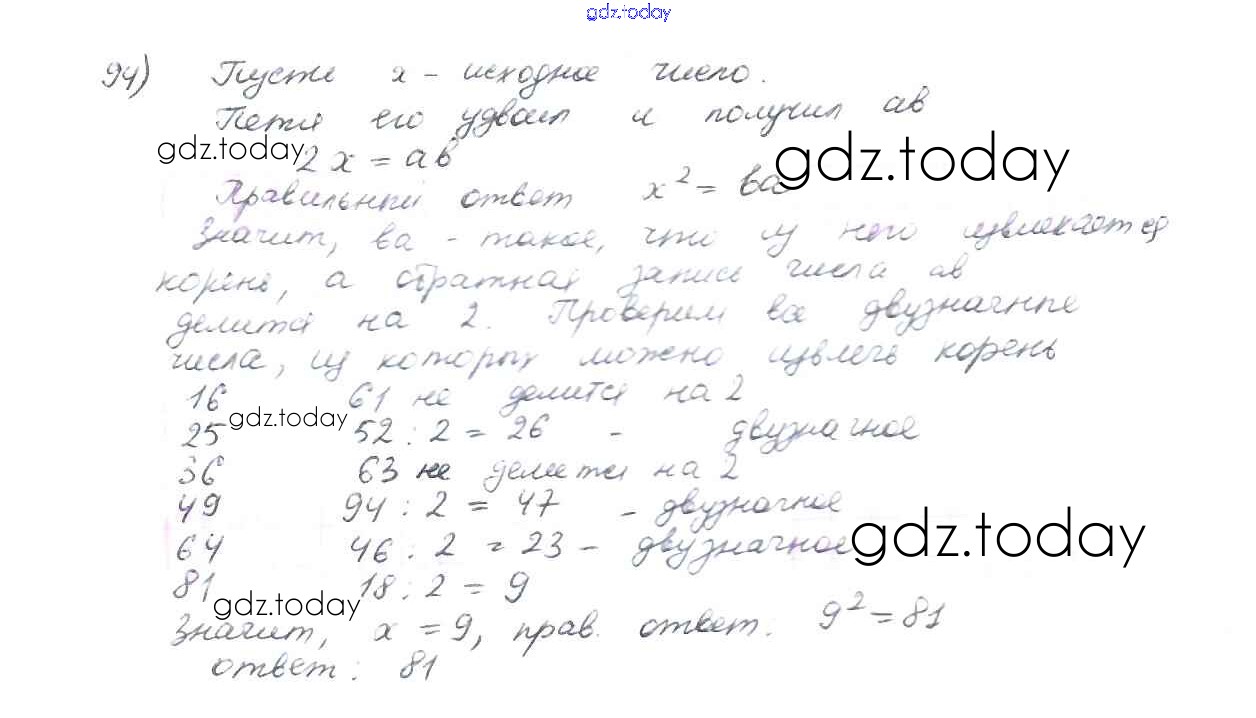 gdz.today
94) Пусть x - исходное число.
Петя его удвоил и получил ав
gdz.today 2x = ав gdz.today
Правильный ответ x² = ва
Значит, ва - такое, что из него извлекается
корень, а обратная запись числа ав
делится на 2. Проверим все двузначные
числа, из которых можно извлечь корень
16 61 не делится на 2
25 gdz.today 52 : 2 = 26 - двузначное
36 63 не делится на 2
49 94 : 2 = 47 - двузначное
64 46 : 2 = 23 - двузначное gdz.today
81 18 : 2 = 9
gdz.today
Значит, x = 9, прав. ответ: 9² = 81
ответ: 81